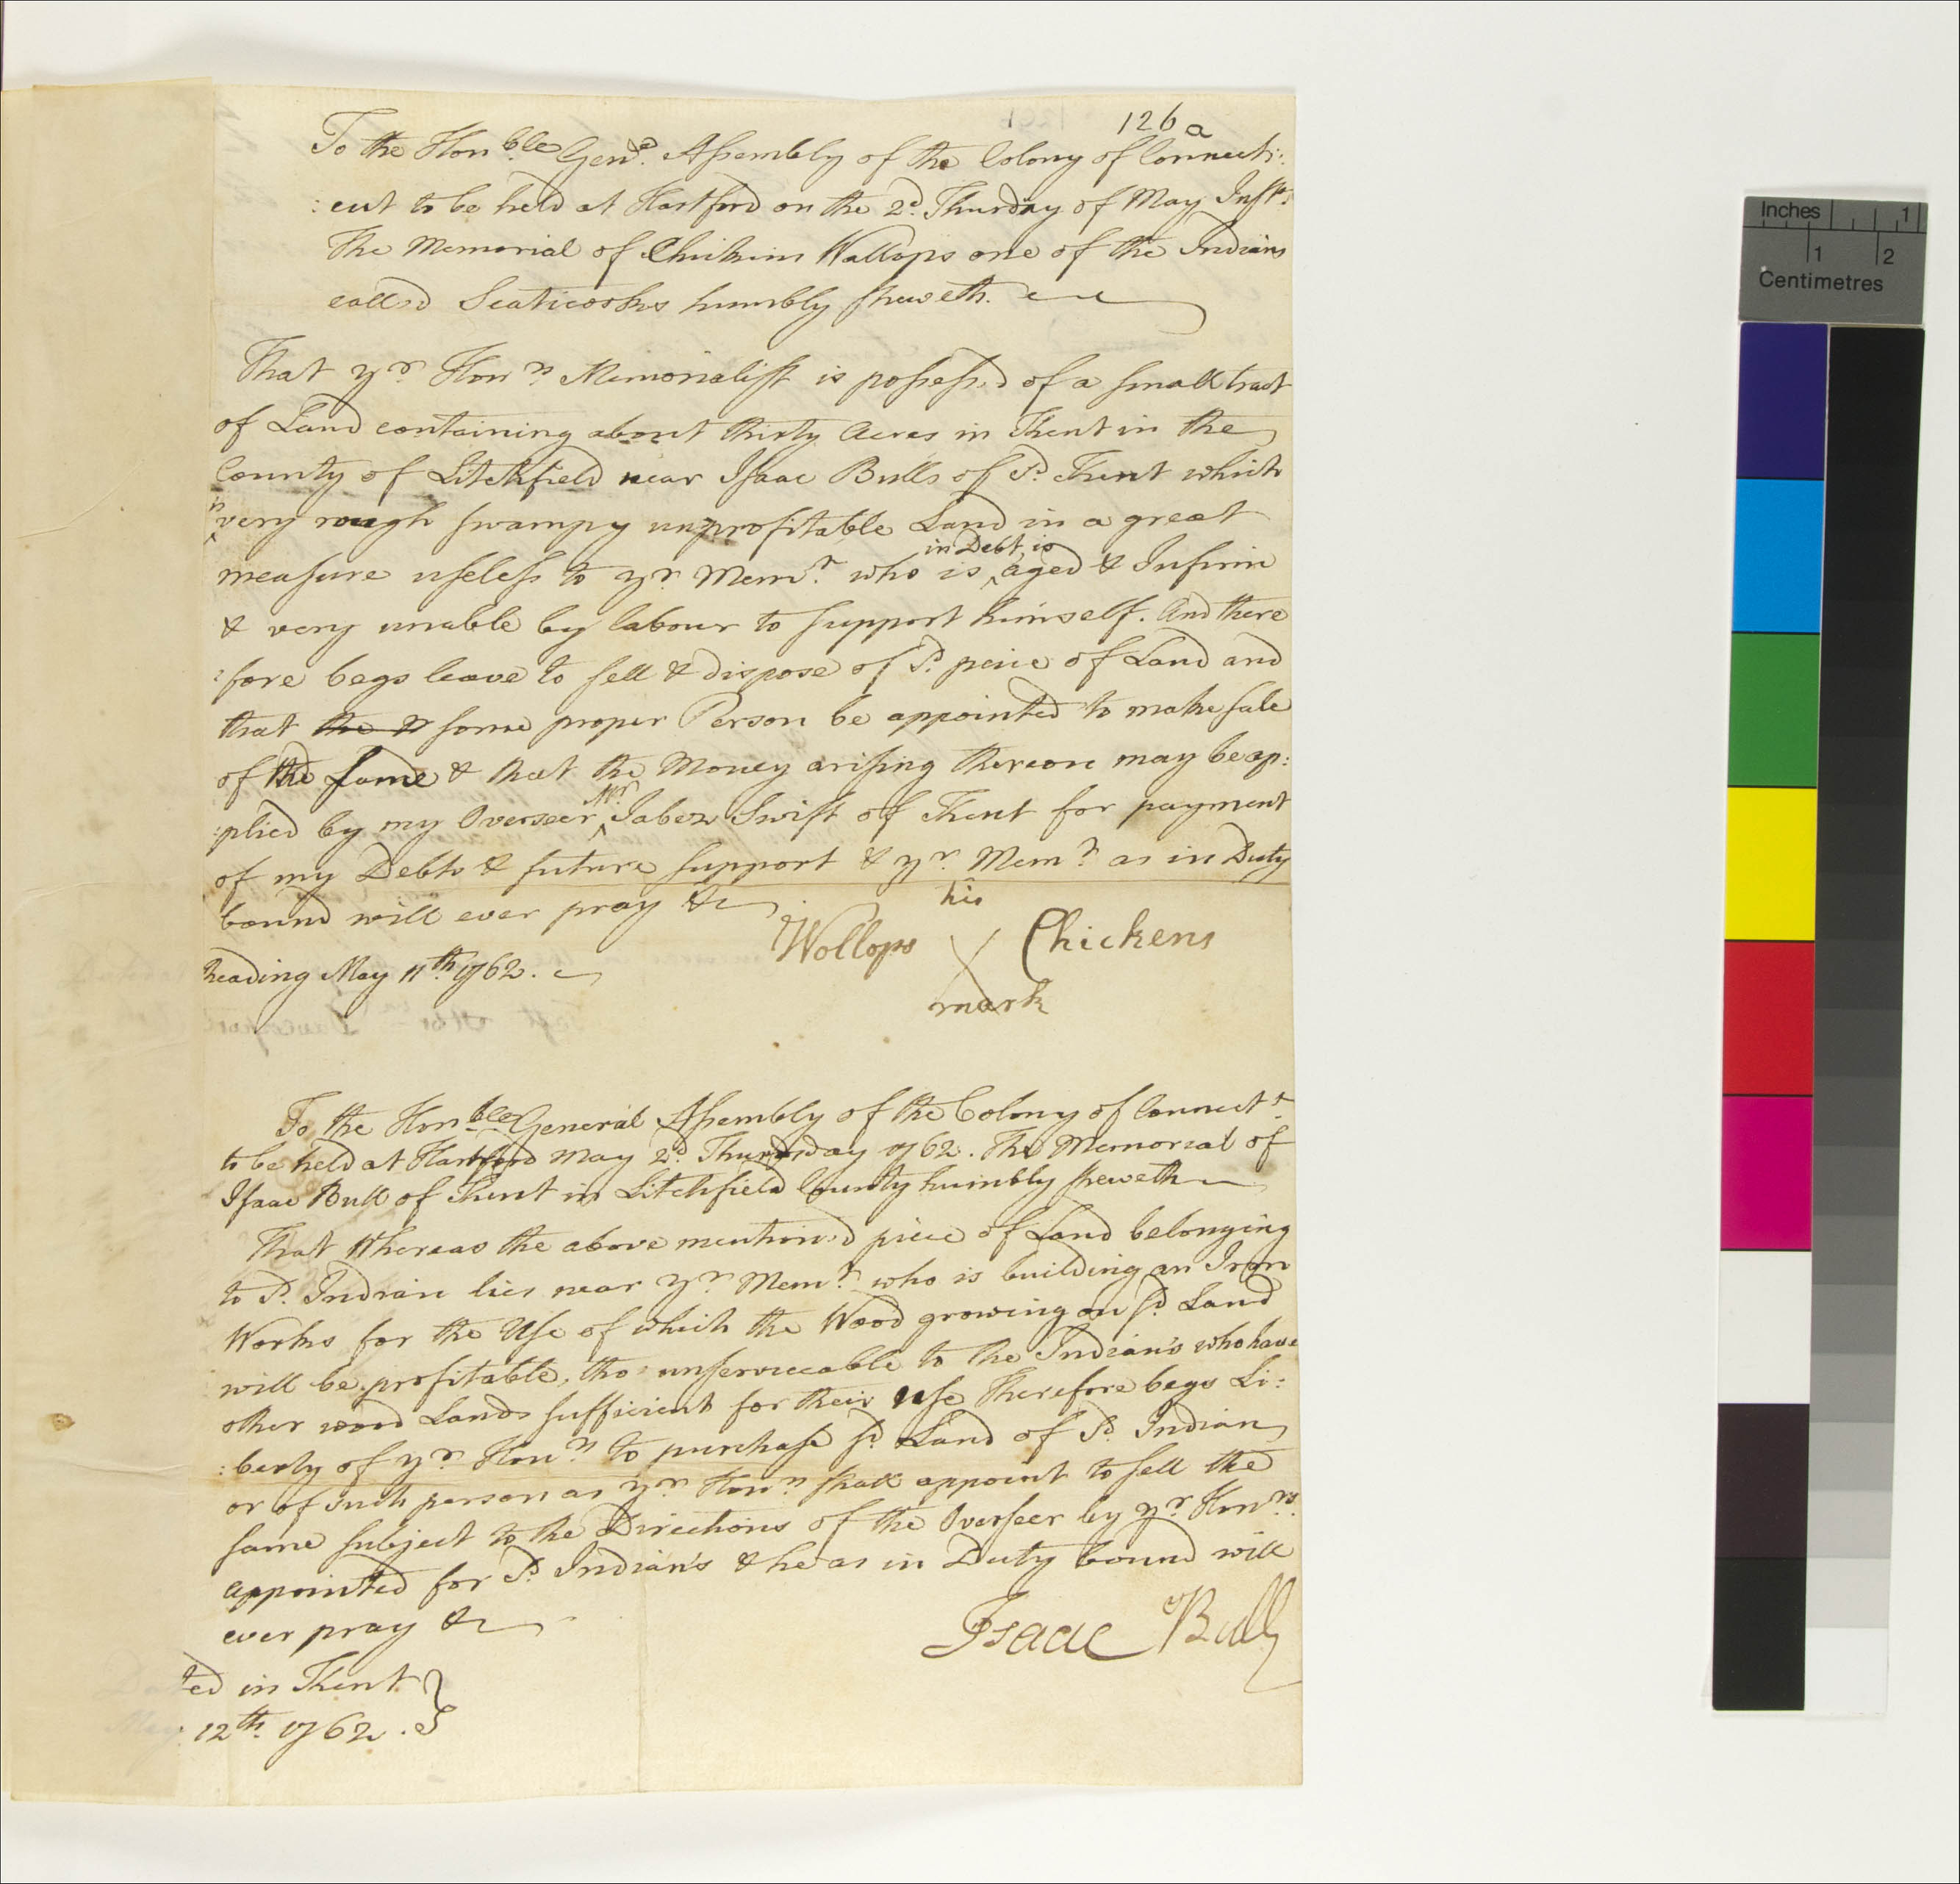 126a
To the Honble Genl Assembly of the Colony of Connecti:
:cut to be held at Hartford on the 2d Thurday of May Inst.
The Memorial of Chickins Wallops one of the Indians
called Scaticooks humbly sheweth.
That yr Honrs Memorialist is possess'd of a small tract
of Land containing about thirty Acres in Kent in the
County of Litchfield near Isaac Bulls of sd Kent which
is
very rough swampy unprofitable Land in a great
in Debt, is
measure useless to yr Memt who is aged & Infirm
& very unable by labour to support himself. And there
:fore begs leave to sell & dispose of sd peice of Land and
that the some proper Person be appointed to make sale
of the same & that the Money arising thereon may be ap:
Mr
:plied by my Overseer Jabez Swift of Kent for payment
of my Debts & future support & yr Memt as in Duty
bound will ever pray &c
his
Wollops X Chickens
mark
Reading May 11th 1762.
To the Honble General Assembly of the Colony of Connectt
to be held at Hartford May 2d Thursday 1762. The Memorial of
Isaac Bull of Kent in Litchfield County humbly sheweth
That Whereas the above mention'd piece of Land belonging
to sd Indian lies near yr Memt who is building an Iron
Works for the Use of which the Wood growing on sd Land
will be profitable, tho' unserviceable to the Indian's who have
other wood Lands sufficient for their use Therefore begs Li:
:berty of yr Honrs to purchase sd Land of sd Indian
or of such person as yr Honrs shall appoint to sell the
same subject to the Directions of the Overseer by yr Honrs
appointed for sd Indian's & he as in Duty bound will
ever pray &c
Isaac Bull
Dated in Kent
May 12th 1762.